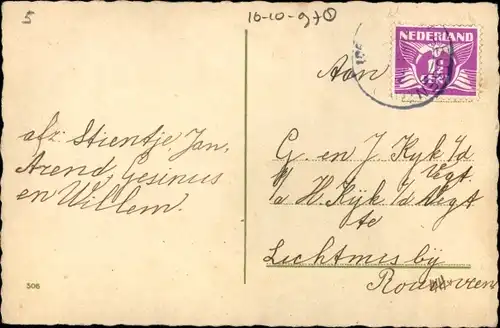 5
16-10-97 ①
NEDERLAND
Aan
afz: Stientje, Jan,
Arend, Gesinus
en Willem.
G. en J. Kyk i/d
Vegt.
i/d H. Kijk i/d Vegt
te
Lichtmis bij
Rouveen
506